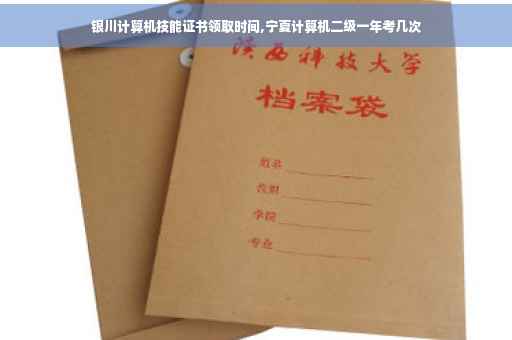 银川计算机技能证书领取时间,宁夏计算机二级一年考几次
陕西科技大学
档案袋
姓名
学院
专业